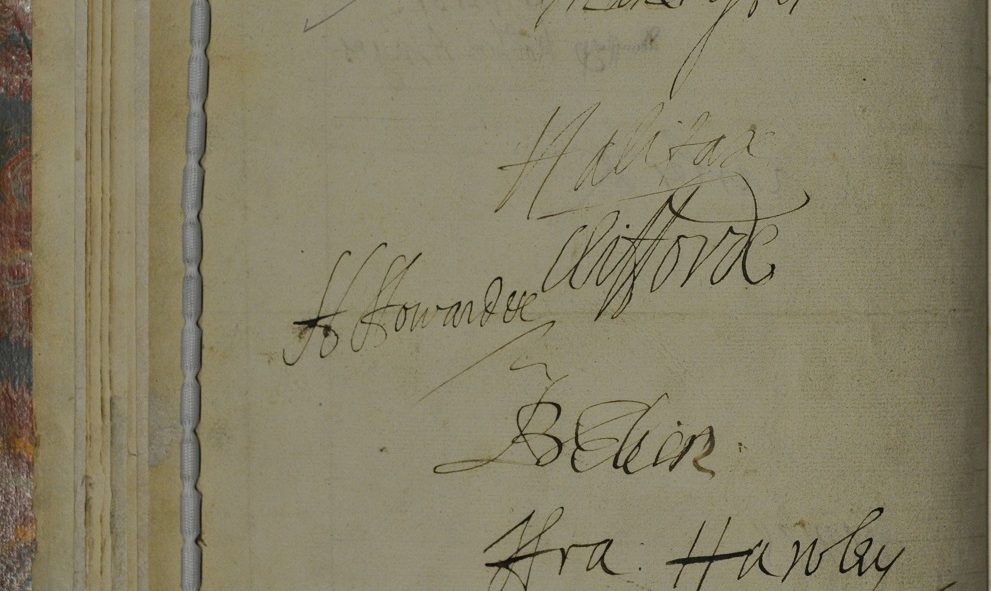 Halifax
Clifforde
H Howarde
B Elien
Fra: Hawley